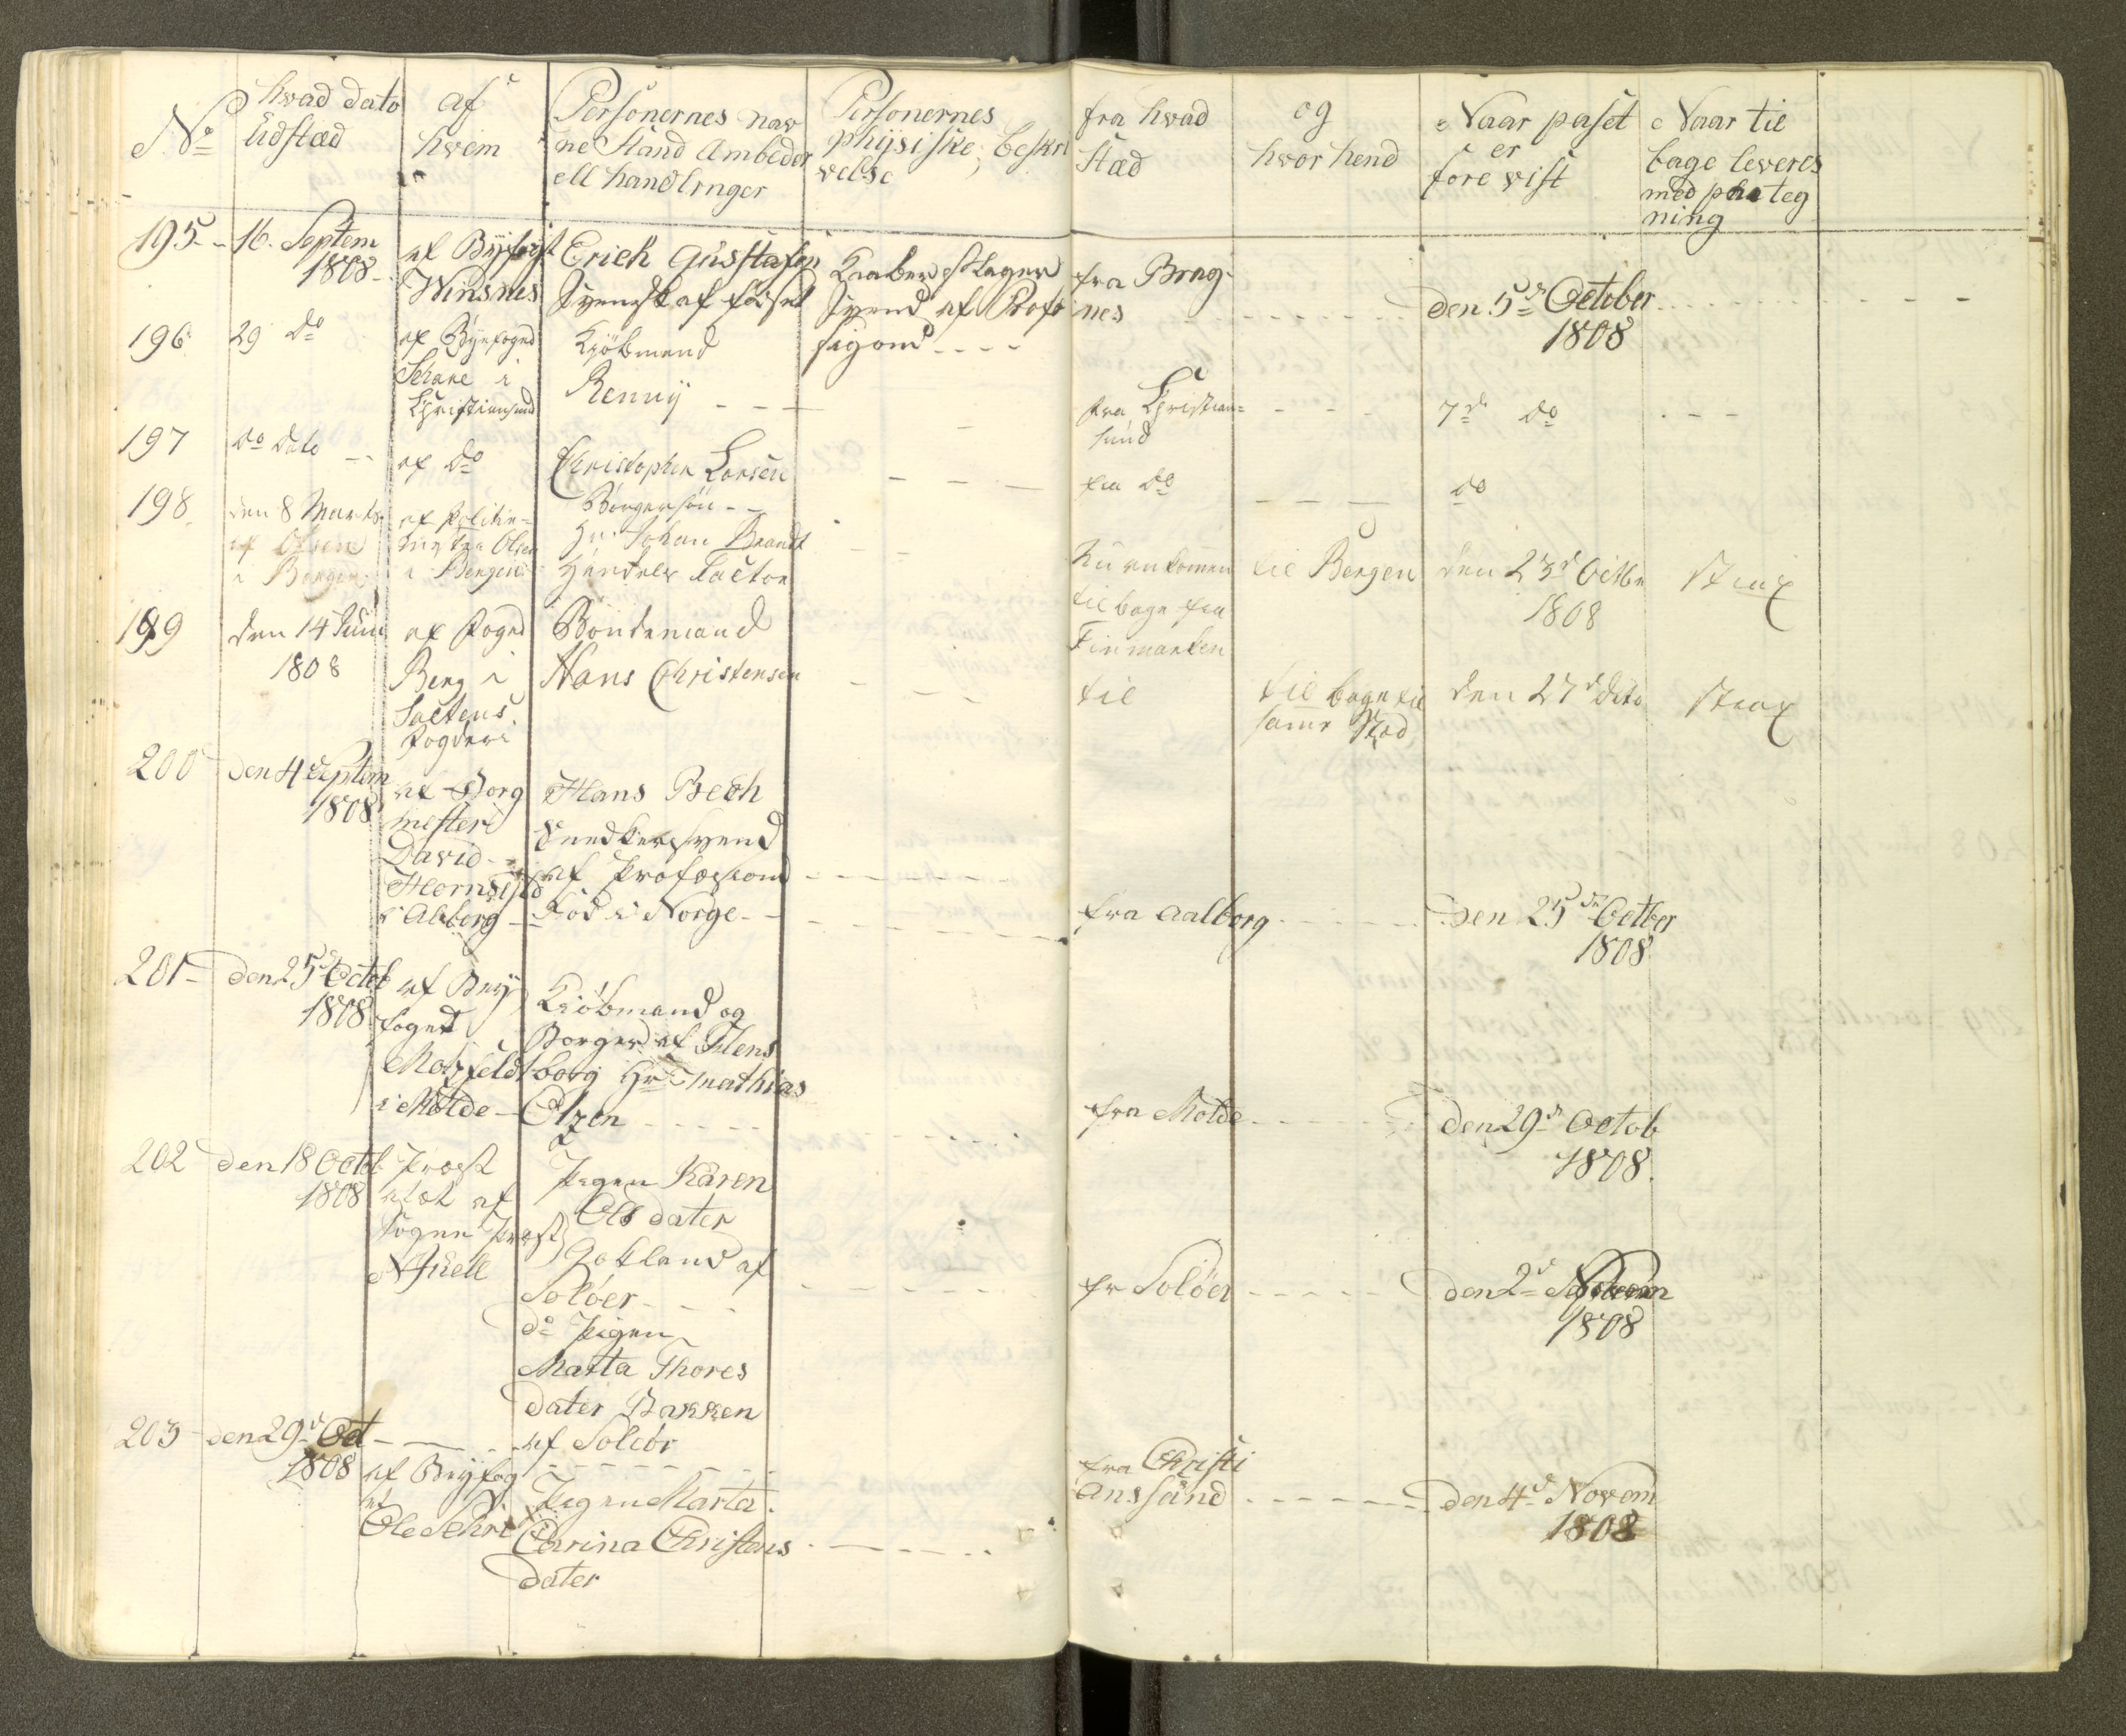 No hvad dato Udstæd
af hvem
Personernes nav
ne Stand Ambeder
ell handlinger
Personernes
phijsiske, beskri
velse
fra hvad
Stæd
og
hvor hend
Naar paset
er
fore vist
Naar til
bage leveres
med paateg
ning
195 - 16. Septem
1808 -
af Bijfogt
Winsnes
Erich Gusstafsen
Svensk af fødsel
Kaaberslager
Svend af Profe
sigond - - - -
fra Brag
nes
den 5d October
1808
196 29 do
af Bÿefoged
i
Christiansund
Kjöbmand
Rennij - - -
fra Christian=
sund
7d do
197 do dato - -
af do
Christopher Larsen
fra do
do
198 den 8 Marts
af Olsen
i Bergen
af Politie=
mester Olsen
i Bergen
Borgersön - -
Hr. Johan Brandt
Handels Factor
Nu ankommen
tilbage fra
Finmarken
til Bergen
den 23d Octbr
1808
Strax
199 den 14 Juni
1808
af Foged
Berg i
Saltens
Fogderi
Bondemand
Hans Christensen
til
tilbage til
samme Stæd
den 27d dito
Strax
200 den 4 Septem
1808
af Borg
mester
David
Hornsyld
i Alborg
Hans Bech
Snedkersvend
af Profesiond
Fød i Norge - -
fra Aalborg
den 25de Octber
1808
201 - den 25d Octob
1808
af Bÿ
foged
Motzfeldt
i Molde -
Kiöbmand og
Borger af Flens
borg Hr Mathias
Olzen - - - - -
fra Molde
den 29d Octob
1808.
202 den 18 Octob
1808
Præst
af
Sogne Præst
Njuell
Pigen Karen
Ols dater
Gotland af
Soløer - - -
do Pigen
Marta Thores
dater Bakken
af Soleør
fr Soløer
den 2d Novem
1808
203 - den 29d Oct
1808
af Bÿfog
ed
Ole
Pigen Marta
Carina Christens
dater
fra Christi
ansSand
den 4d Novem
1808